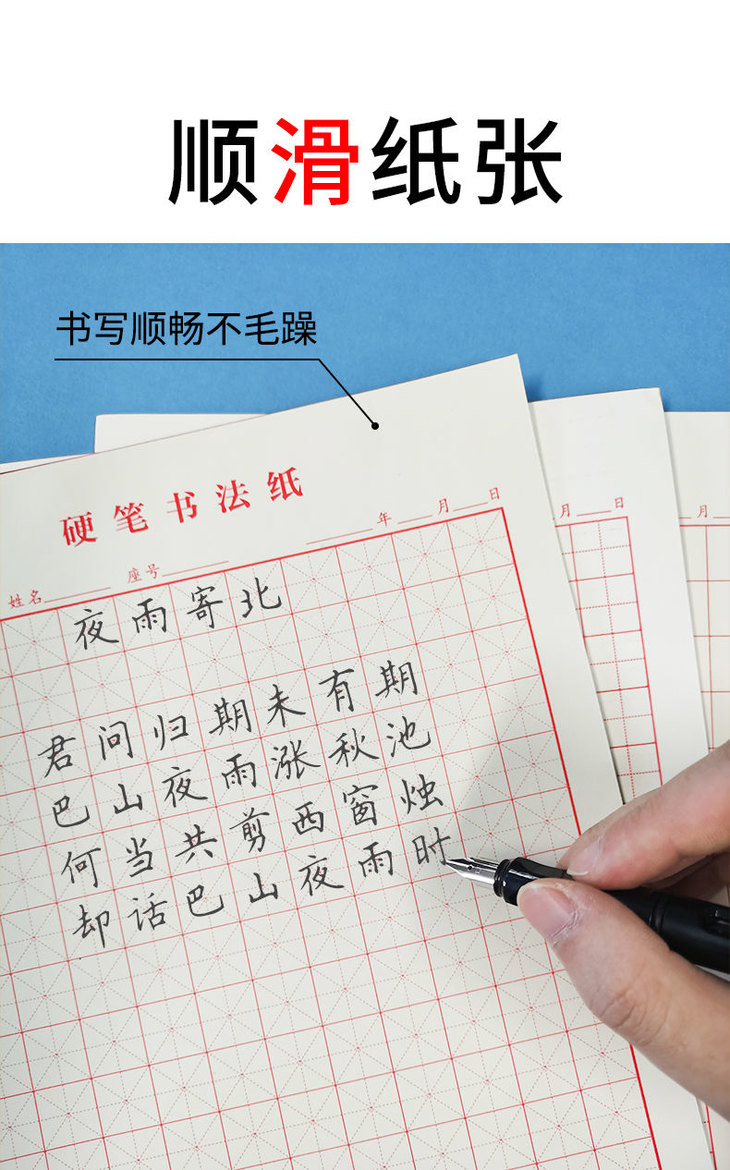 顺滑纸张
书写顺畅不毛躁
硬笔书法纸
姓名 座号 年 月 日
月 日
月
夜雨寄北
君问归期未有期
巴山夜雨涨秋池
何当共剪西窗烛
却话巴山夜雨时